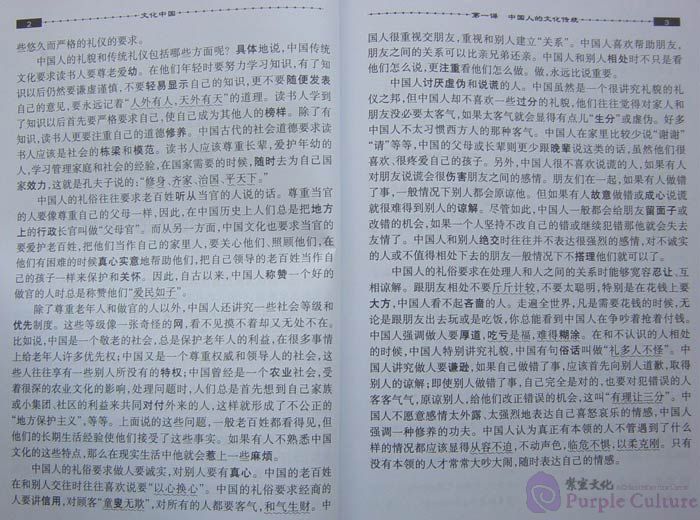 2 文化中国
些悠久而严格的礼仪的要求。
中国人的礼貌和传统礼仪包括哪些方面呢？具体地说，中国传统
文化要求读书人要尊老爱幼。在他们年轻时要努力学习知识，有了知
识以后仍然要谦虚谨慎，不要轻易显示自己的知识，更不要随便发表
自己的意见，要永远记着“人外有人，天外有天”的道理。读书人学到
了知识以后首先要严格要求自己，使自己成为其他人的榜样。除了有
知识，读书人更要注重自己的道德修养。中国古代的社会道德要求读
书人应该是社会的栋梁和模范。读书人应该尊重长辈，爱护年幼的
人，学习管理家庭和社会的经验，在国家需要的时候，随时去为自己国
家效力，这就是孔夫子说的：“修身、齐家、治国、平天下。”
中国人的礼俗往往要求老百姓听从当官的人说的话。尊重当官
的人要像尊重自己的父母一样，因此，在中国历史上人们总是把地方
上的行政长官叫做“父母官”。而从另一方面，中国文化也要求当官的
要爱护老百姓，把他们当作自己的家里人，要关心他们、照顾他们，在
他们有困难的时候真心实意地帮助他们，把自己领导的老百姓当作自
己的孩子一样来保护和关怀。因此，自古以来，中国人称赞一个好的
做官的人时总是称赞他们“爱民如子”。
除了尊重老年人和做官的人以外，中国人还讲究一些社会等级和
优先制度。这些等级像一张奇怪的网，看不见摸不着却又无处不在。
比如说，中国是一个敬老的社会，总是保护老年人的利益，在很多事情
上给老年人许多优先权；中国又是一个尊重权威和领导人的社会，这
些人往往享有一些别人所没有的特权；中国曾经是一个农业社会，受
着很深的农业文化的影响，处理问题时，人们总是首先想到自己家族
或小集团、社区的利益来共同对付外来的人，这样就形成了不公正的
“地方保护主义”，等等。上面说的这些问题，一般老百姓都看得见，但
他们的长期生活经验使他们接受了这些事实。如果有人不熟悉中国
文化的这些特点，那么在现实生活中他就会惹上一些麻烦。
中国人的礼俗要求做人要诚实，对别人要有真心。中国的老百姓
在和别人交往时往往喜欢说要“以心换心”。中国的礼俗要求经商的
人要讲信用，对顾客“童叟无欺”，对所有的人都要客气，和气生财。中
第一课 中国人的文化传统 3
国人很重视交朋友，重视和别人建立“关系”。中国人喜欢帮助朋友，
朋友之间的关系可以比亲兄弟还亲。中国人和别人相处时不只是看
他们怎么说，更注重看他们怎么做。做，永远比说重要。
中国人讨厌虚伪和说谎的人。中国虽然是一个很讲究礼貌的礼
仪之邦，但中国人却不喜欢一些过分的礼貌，他们往往觉得对家人和
朋友没必要太客气，如果太客气就会显得有点儿“生分”或虚伪。好多
中国人不太习惯西方人的那种客气。中国人在家里比较少说“谢谢”
“请”等等，中国的父母或长辈则更少跟晚辈说这类的话，虽然他们很
喜欢、很疼爱自己的孩子。另外，中国人很不喜欢说谎的人，如果有人
对朋友说谎会很伤害朋友之间的感情。朋友们在一起，如果有人做错
了事，一般情况下别人都会原谅他。但如果有人故意做错或成心说谎
就很难得到别人的谅解。尽管如此，中国人一般都会给朋友留面子或
改错的机会，如果一个人坚持不改自己的错或继续犯错那他就会失去
友情了。中国人和别人绝交时往往并不表达很强烈的感情，对不诚实
的人或不值得相处下去的朋友一般情况下不搭理他们就可以了。
中国人的礼俗要求在处理人和人之间的关系时能够宽容忍让、互
相谅解。跟朋友相处不要斤斤计较，不要太聪明，特别是在花钱上要
大方，中国人看不起吝啬的人。走遍全世界，凡是需要花钱的时候，无
论是跟朋友出去玩或是吃饭，你总能看到中国人在争吵着抢着付钱。
中国人强调做人要厚道，吃亏是福，难得糊涂。在和不认识的人相处
的时候，中国人特别讲究礼貌，中国有句俗话叫做“礼多人不怪”。中
国人讲究做人要谦逊，如果自己做错了事，应该首先向别人道歉，取得
别人的谅解；即使别人做错了事，自己完全是对的，也要对犯错误的人
客客气气，原谅别人，给他们改正错误的机会，这叫“有理让三分”。中
国人不愿意感情太外露、太强烈地表达自己喜怒哀乐的情感，中国人
强调一种修养的功夫。中国人认为真正有本领的人不管遇到了什么
样的情况都应该显得从容不迫，不动声色，临危不惧，以柔克刚。只有
没有本领的人才常常大吵大闹，随时表达自己的情感。
紫金文化
Purple Culture